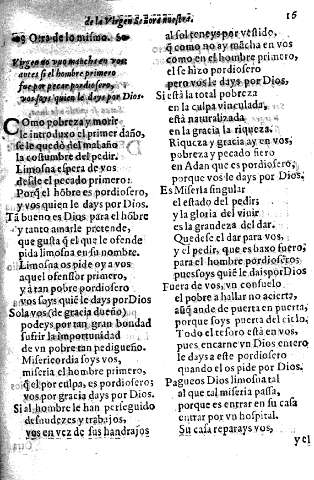 de la Virgen señora nuestra.
16
Otra de lo mismo.
Virgen no vuo mācha en vos
antes si el hombre primero
fue por pecar pordiosero,
vos soys quien le days por Dios.
COmo pobreza y morir
le introduxo el primer daño,
se le quedò del mal año
la costumbre del pedir.
Limosna espera de vos
desde el pecado primero:
Porq̃ el hōbre es pordiosero,
y vos quien le days por Dios.
Tā bueno es Dios para el hōbre
y tanto amarle pretende,
que gusta q̃ el que le ofende
pida limosna en su nombre.
Limosna os pide oy a vos
aquel ofensor primero,
y a tan pobre pordiosero
vos soys quiē le days por Dios
Sola vos (de gracia dueño)
podeys por tan gran bondad
sufrir la importunidad
de vn pobre tan pedigueño.
Misericordia soys vos,
miseria el hombre primero,
q̃ el por culpa, es pordiosero;
vos por gracia days por Dios.
Si al hombre le han perseguido
desnudezes y trabajos,
vos en vez de sus handrajos
al sol teneys por vestido,
q̃ como no ay mācha en vos
como en el hombre primero,
el se hizo pordiosero
pero vos le days por Dios.
Si està la total pobreza
en la culpa vinculada,
està naturalizada
en la gracia la riqueza.
Riqueza y gracia ay en vos,
pobreza y pecado fiero
en Adan que es pordiosero,
porque vos le days por Dios.
Es Miseria singular
el estado del pedir;
y la gloria del viuir
es la grandeza del dar.
Quedese el dar para vos,
y el pedir, que es baxo fuero,
para el hombre pordiosero;
pues soys quiē le dais por Dios
Fuera de vos, vn consuelo
el pobre a hallar no acierta,
aūq̃ ande de puerta en puerta,
porque soys puerta del cielo.
Todo el tesoro està en vos,
pues encarne vn Dios entero
le days a este pordiosero
quando el os pide por Dios.
Pagueos Dios limosna tal
al que tal miseria passa,
porque es entrar en su casa
entrar por vn hospital.
Su casa reparays vos,
y el